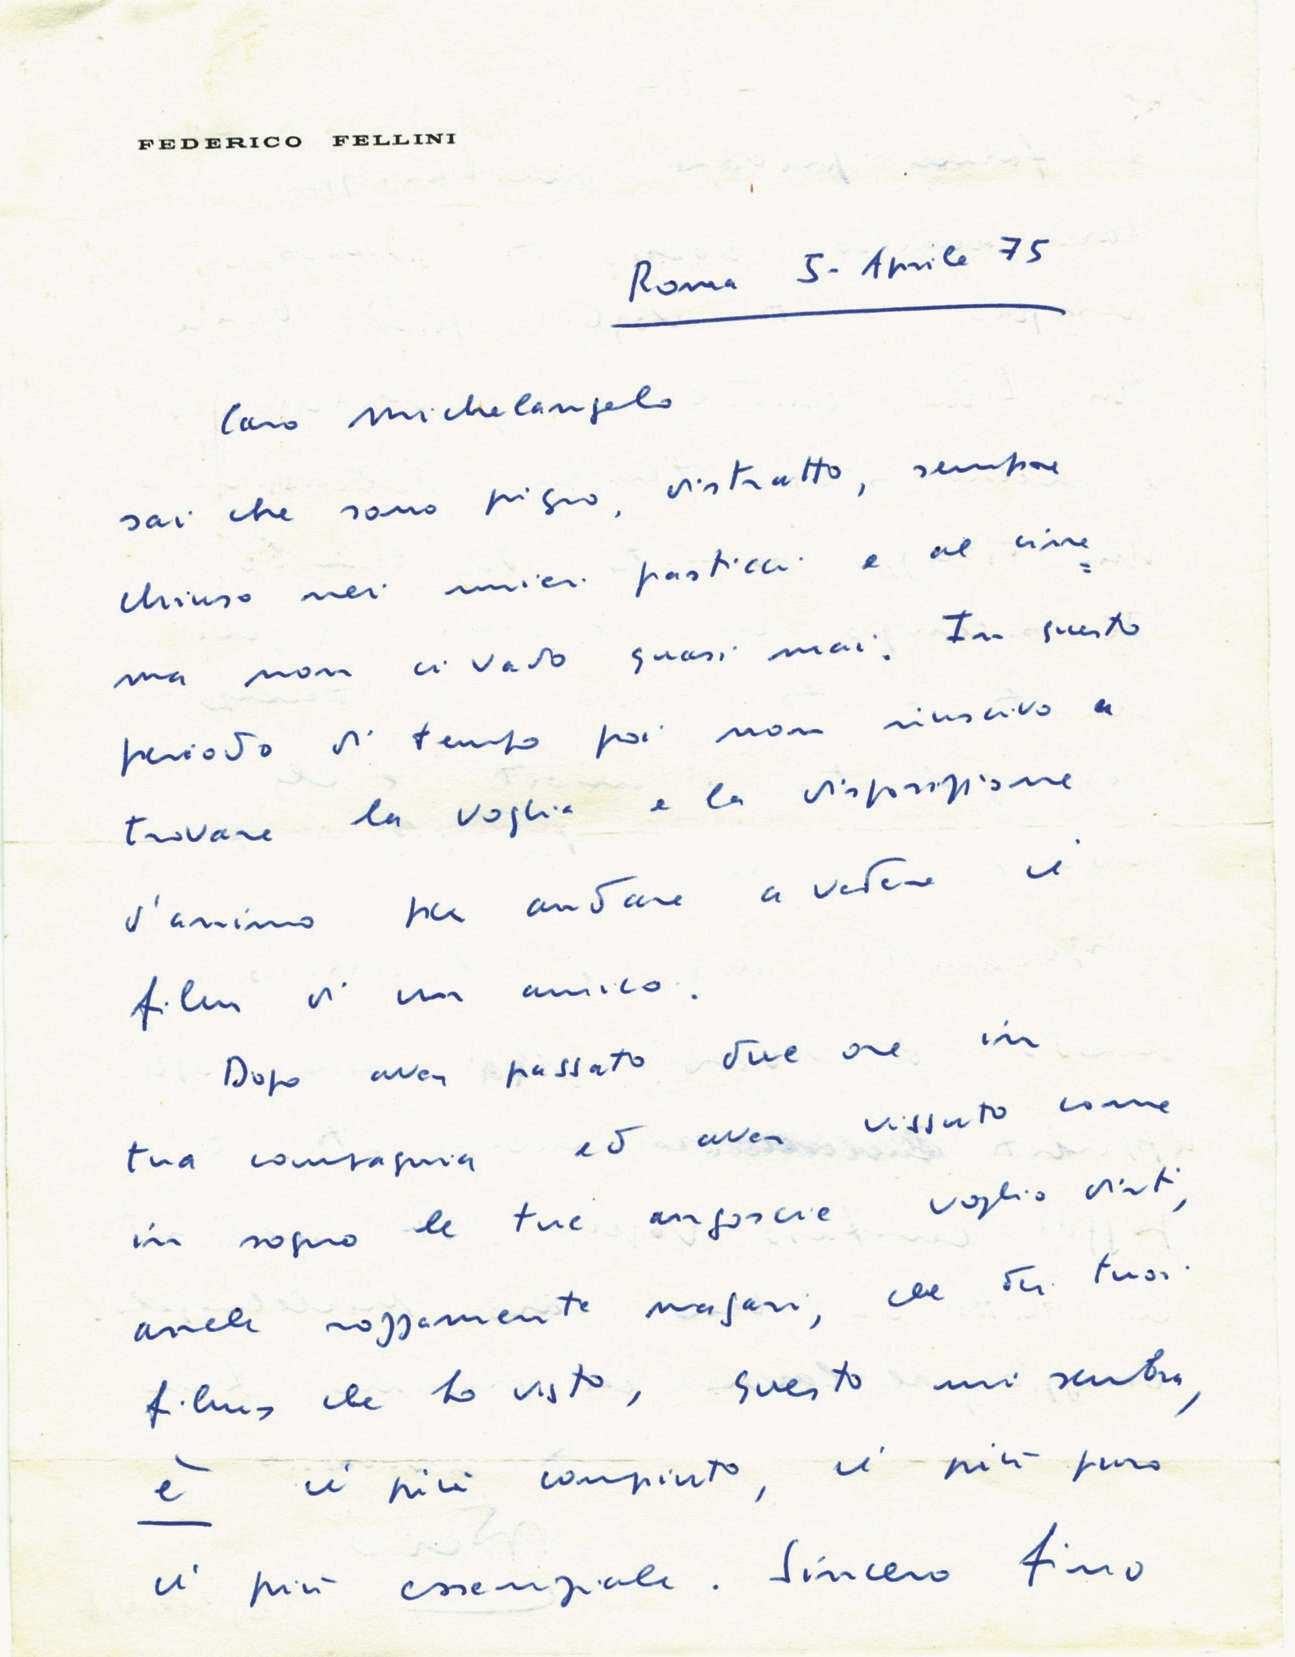 FEDERICO FELLINI
Roma 5- Aprile 75
Caro Michelangelo
sai che sono pigro, distratto, sempre
chiuso nei miei pasticci e al cine=
ma non ci vado quasi mai. In questo
periodo di tempo poi non riuscivo a
trovare la voglia e la disposizione
d'animo per andare a vedere il
film di un amico.
Dopo aver passato due ore in
tua compagnia ed aver vissuto come
in sogno le tue angoscie voglio dirti,
anche rozzamente magari, che dei tuoi
films che ho visto, questo mi sembra,
è il più compiuto, il più puro
il più essenziale. Sincero fino